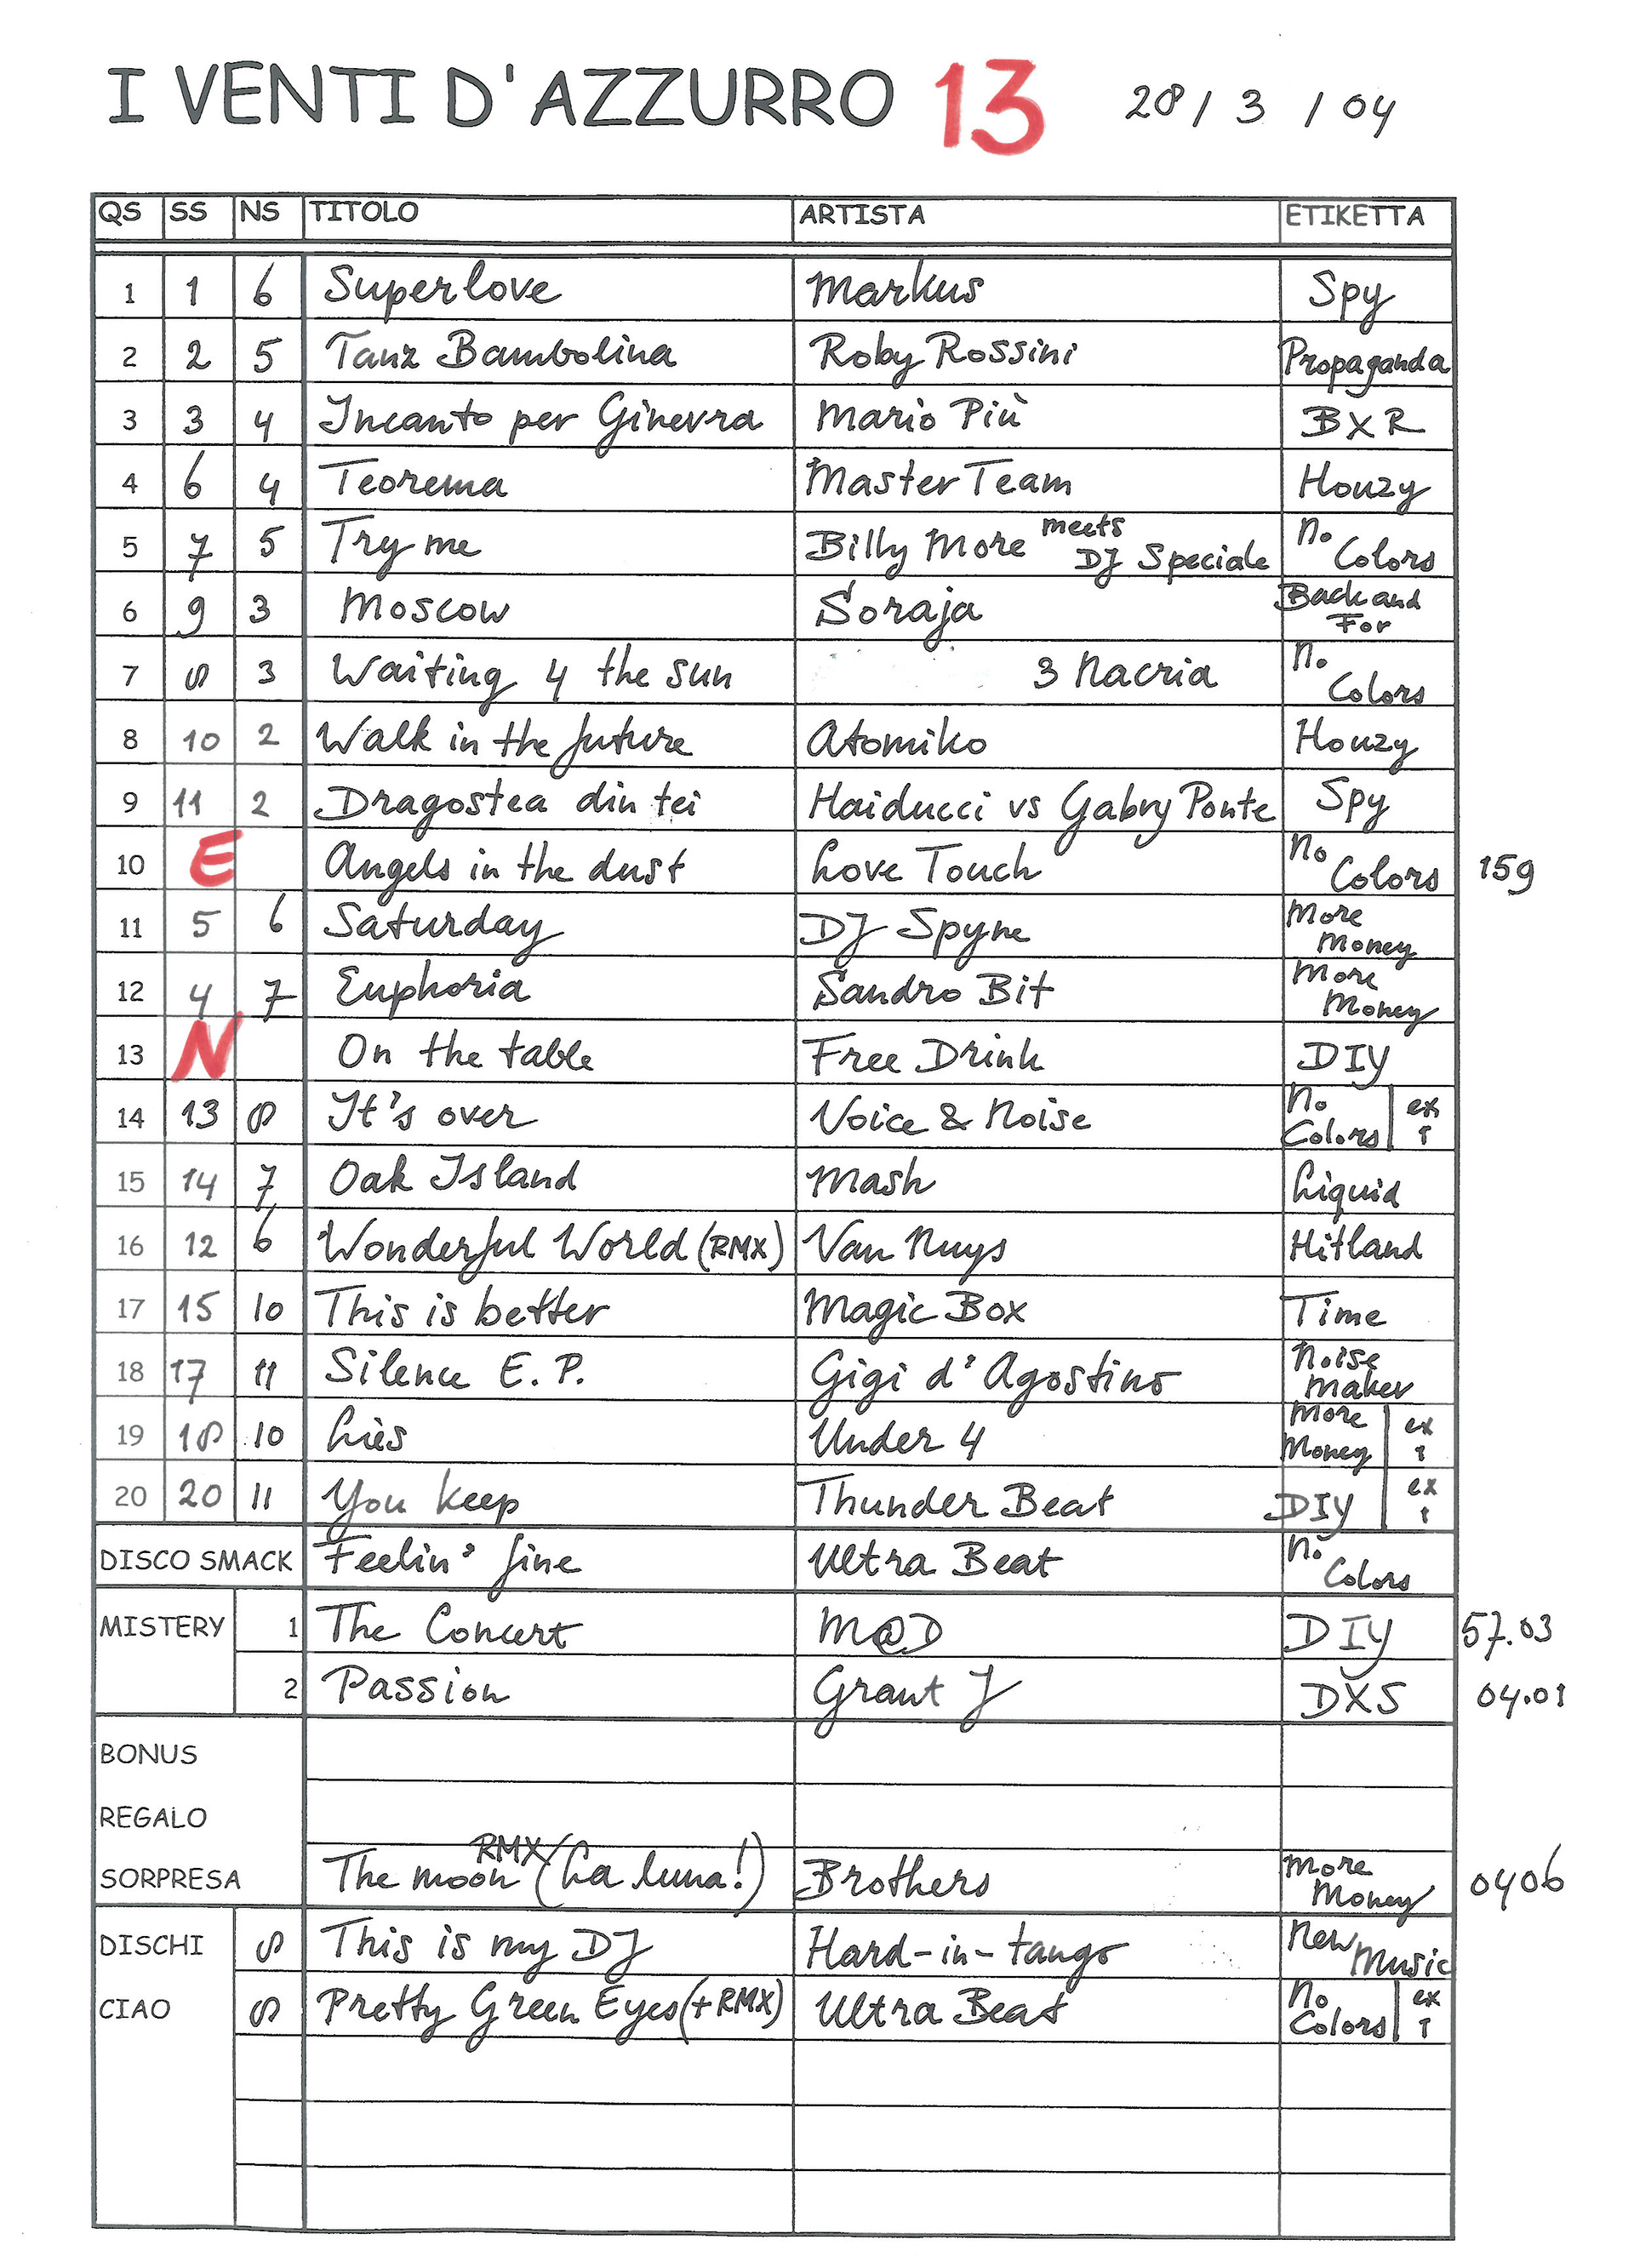 I VENTI D'AZZURRO 13 28/3/04
QS SS NS TITOLO ARTISTA ETIKETTA
1 1 6 Superlove Markus Spy
2 2 5 Tanz Bambolina Roby Rossini Propaganda
3 3 4 Incanto per Ginevra Mario Più BXR
4 6 4 Teorema Master Team Houzy
5 7 5 Try me Billy More meets DJ Speciale No Colors
6 9 3 Moscow Soraja Back and For
7 8 3 Waiting 4 the sun 3 Nacria No Colors
8 10 2 Walk in the future Atomiko Houzy
9 11 2 Dragostea din tei Haiducci vs Gabry Ponte Spy
10 E Angels in the dust Love Touch No Colors 159
11 5 6 Saturday DJ Spyne More Money
12 4 7 Euphoria Sandro Bit More Money
13 N On the table Free Drink DIY
14 13 8 It's over Voice & Noise No Colors ex 1
15 14 7 Oak Island Mash Liquid
16 12 6 Wonderful World (RMX) Van Nuys Hitland
17 15 10 This is better Magic Box Time
18 17 11 Silence E.P. Gigi d'Agostino Noise Maker
19 18 10 Lies Under 4 More Money ex 1
20 20 11 You keep Thunder Beat DIY ex 1
DISCO SMACK Feelin' fine Ultra Beat No Colors
MISTERY 1 The Concert M@D DIY 57.03
2 Passion Grant J DXS 04.01
BONUS
REGALO
SORPRESA The moon RMX (La luna!) Brothers More Money 0406
DISCHI 8 This is my DJ Hard-in-tango New Music
CIAO 8 Pretty Green Eyes (+RMX) Ultra Beat No Colors ex 1